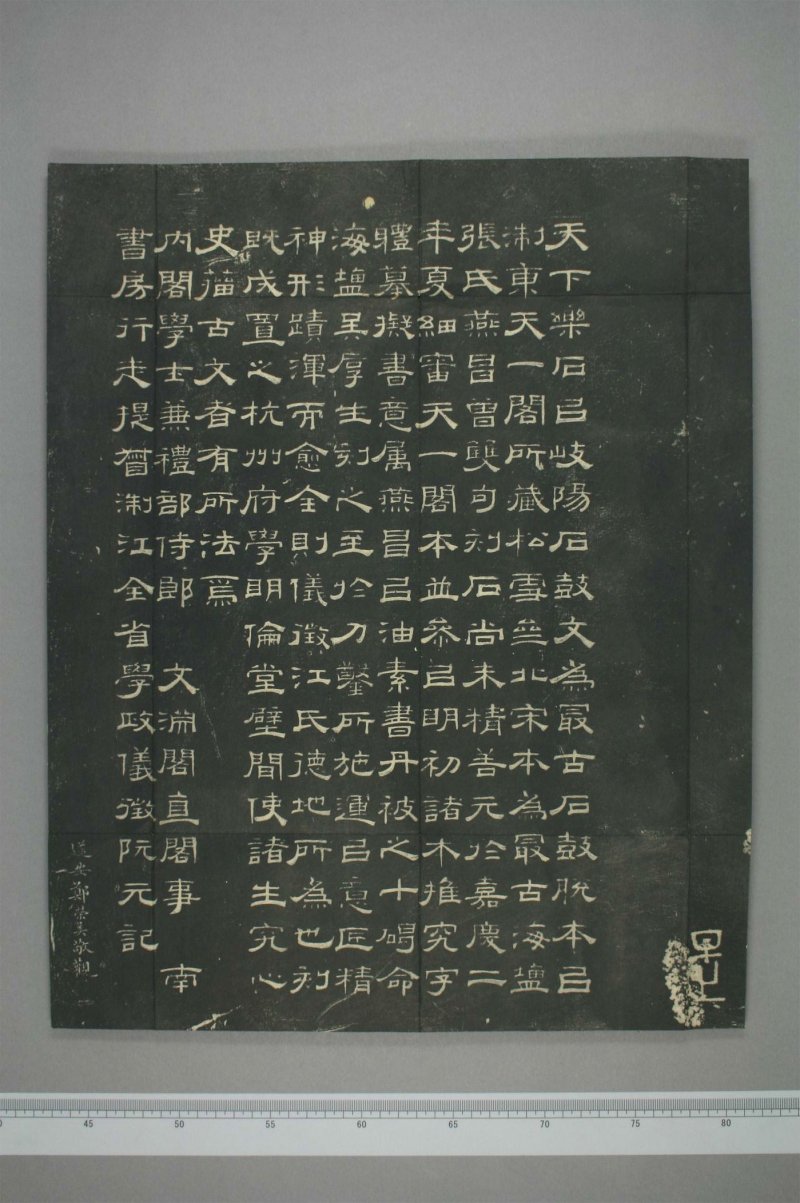 天下樂石㠯岐陽石鼓文為冣古石鼓脫本㠯
淛東天一閣所藏松雪齋北宋本為冣古海鹽
張氏燕昌曾雙句刻石尚未精善元於嘉慶二
年夏細審天一閣本並叅㠯明初諸本推究字
軆摹擬書意屬燕昌㠯油素書丹被之十碣命
海鹽吳厚生刻之至於刀鑿所施運㠯意匠精
神形蹟渾而愈全則儀徵江氏德地所為也刻
既成置之杭州府學明倫堂壁間使諸生究心
史籀古文者有所法焉
內閣學士兼禮部侍郎 文淵閣直閣事 南
書房行走提督淛江全省學政儀徵阮元記
鄭 敬觀